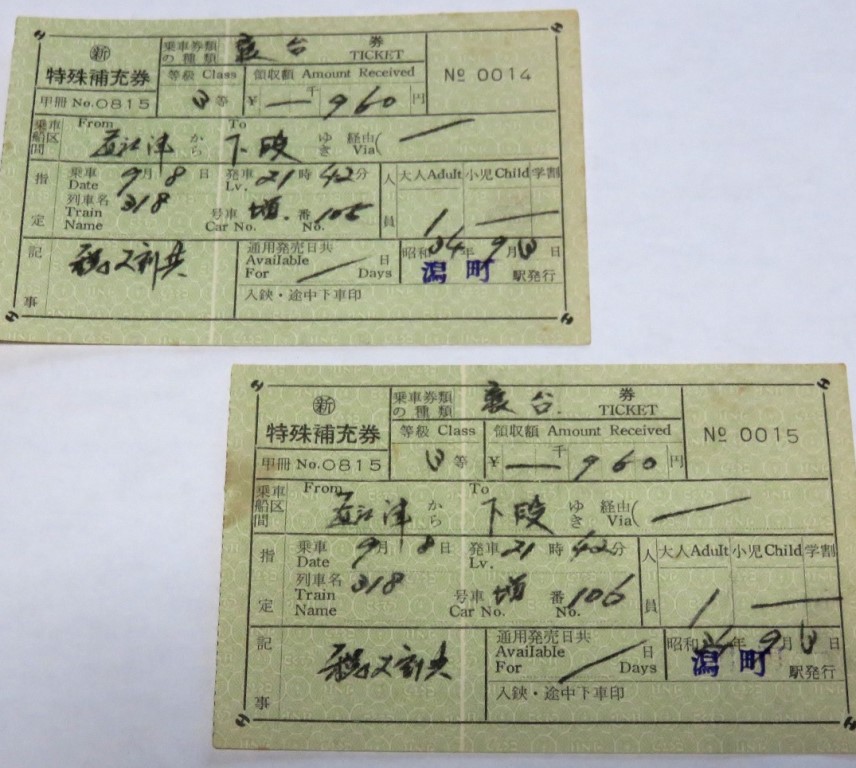 新
特殊補充券
甲冊 No.0815
乗車券類の種類 寝台 券 TICKET
等級 Class 領収額 Amount Received
3 等 ¥ 千 960 円
№ 0014
乗車船区間
From 直江津 から To 下段 ゆき 経由 Via(
指定
乗車 Date 9月8日 発車 Lv. 21時42分
列車名 Train Name 318 号車 Car No. 増 番 No. 105
人員 大人Adult 小児Child 学割
1
記事
通用発売日共 Available For 日 Days
昭和34年9月3日
潟町 駅発行
入鋏・途中下車印
新
特殊補充券
甲冊 No.0815
乗車券類の種類 寝台 券 TICKET
等級 Class 領収額 Amount Received
3 等 ¥ 千 960 円
№ 0015
乗車船区間
From 直江津 から To 下段 ゆき 経由 Via(
指定
乗車 Date 9月8日 発車 Lv. 21時42分
列車名 Train Name 318 号車 Car No. 増 番 No. 106
人員 大人Adult 小児Child 学割
1
記事
通用発売日共 Available For 日 Days
昭和34年9月3日
潟町 駅発行
入鋏・途中下車印